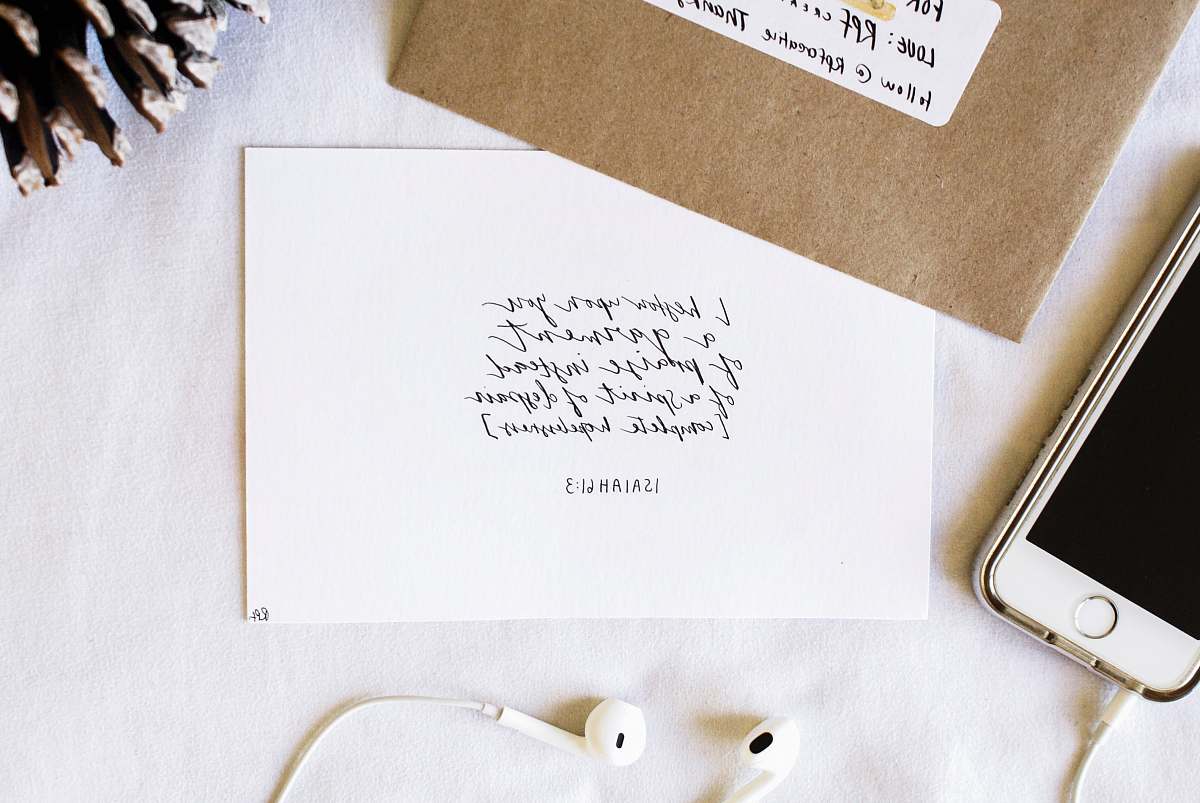 FOR
LOVE: RPF CREA
follow @ Rpfcreative Thanks
I bestow upon you
a garment
of praise instead
of a spirit of despair
[complete hopelessness]
ISAIAH 61:3
RPF